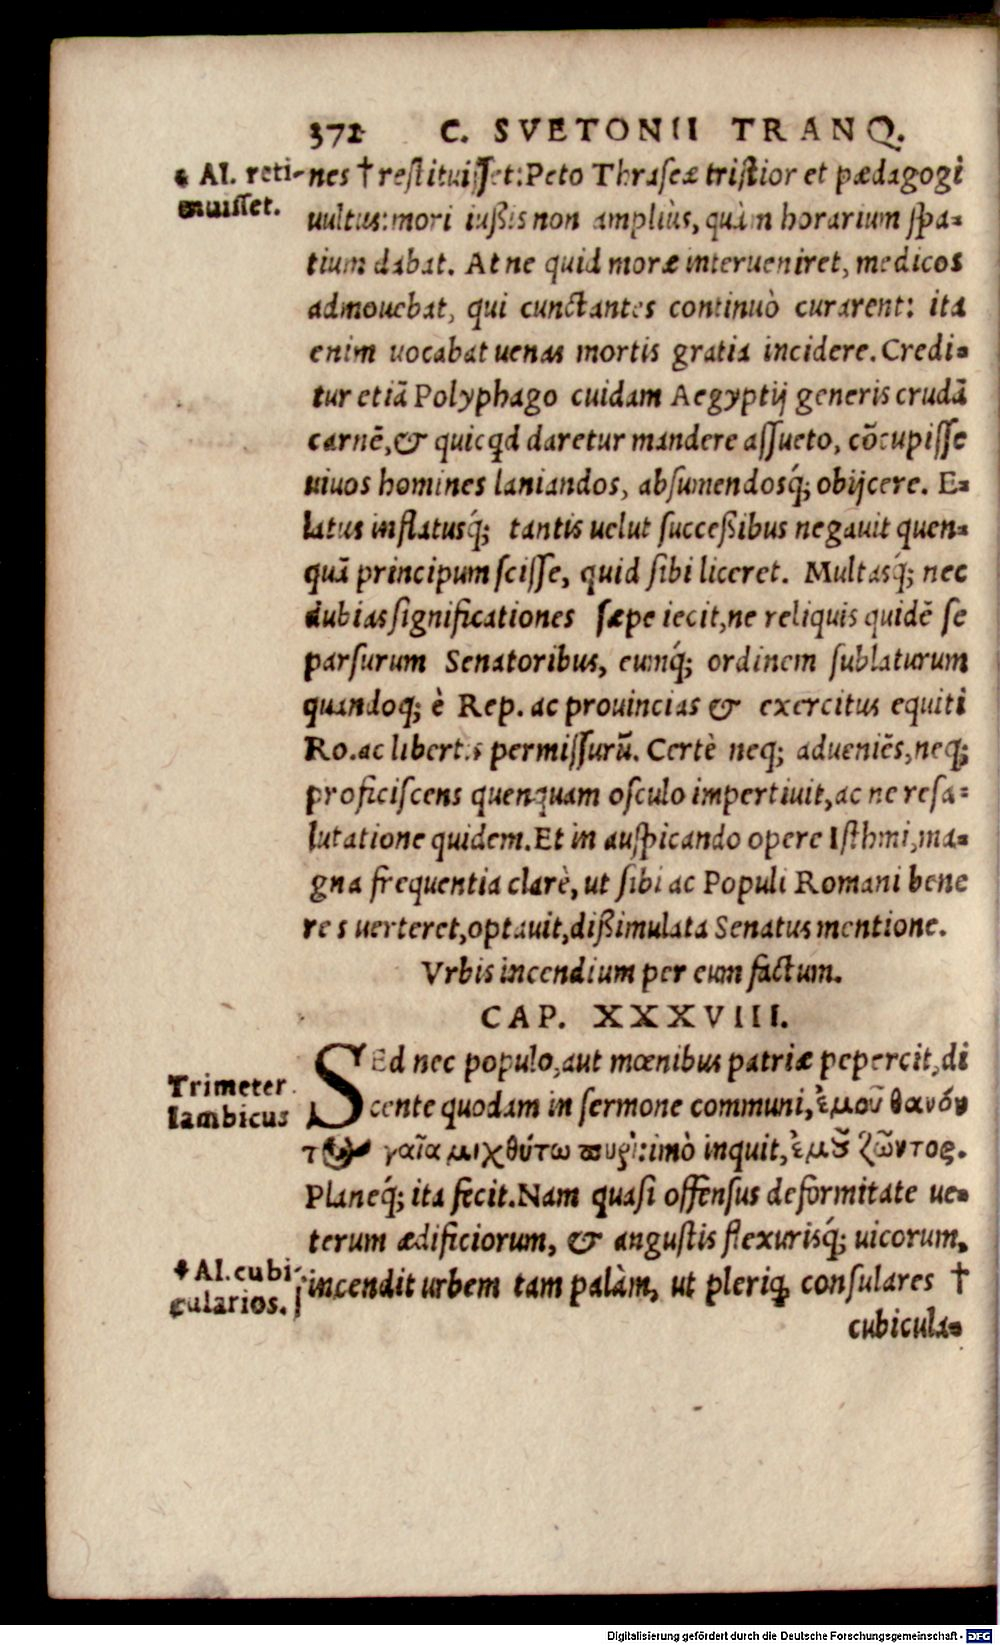 372 C. SVETONII TRANQ.
* Al. reti-
nuisset.
nes † restituisset: Peto Thraseæ tristior et pædagogi
uultus: mori iußis non ampliùs, quàm horarium spa-
tium dabat. At ne quid moræ interueniret, medicos
admouebat, qui cunctantes continuò curarent: ita
enim uocabat uenas mortis gratia incidere. Credi-
tur etiã Polyphago cuidam Aegyptij generis crudã
carnẽ, & quicqd daretur mandere assueto, cõcupisse
uiuos homines laniandos, absumendosq́; obijcere. E-
latus inflatusq́; tantis uelut succeßibus negauit quen-
quã principum scisse, quid sibi liceret. Multasq́; nec
dubias significationes sæpe iecit, ne reliquis quidẽ se
parsurum Senatoribus, eumq́; ordinem sublaturum
quandoq; è Rep. ac prouincias & exercitus equiti
Ro. ac libertis permissurũ. Certè neq; adueniẽs, neq;
proficiscens quenquam osculo impertiuit, ac ne resa-
lutatione quidem. Et in auspicando opere Isthmi, ma-
gna frequentia clarè, ut sibi ac Populi Romani bene
res uerteret, optauit, dißimulata Senatus mentione.
Vrbis incendium per eum factum.
CAP. XXXVIII.
Trimeter
Iambicus
SEd nec populo, aut mœnibus patriæ pepercit, di
cente quodam in sermone communi, ἐμοῦ θανόν
τος γαῖα μιχθύτω πυρί: imò inquit, ἐμοῦ ζῶντος.
Planeq́; ita fecit. Nam quasi offensus deformitate ue-
terum ædificiorum, & angustis flexurisq́; uicorum,
* Al. cubi-
cularios.
incendit urbem tam palàm, ut pleriq; consulares †
cubicula-
Digitalisierung gefördert durch die Deutsche Forschungsgemeinschaft - DFG